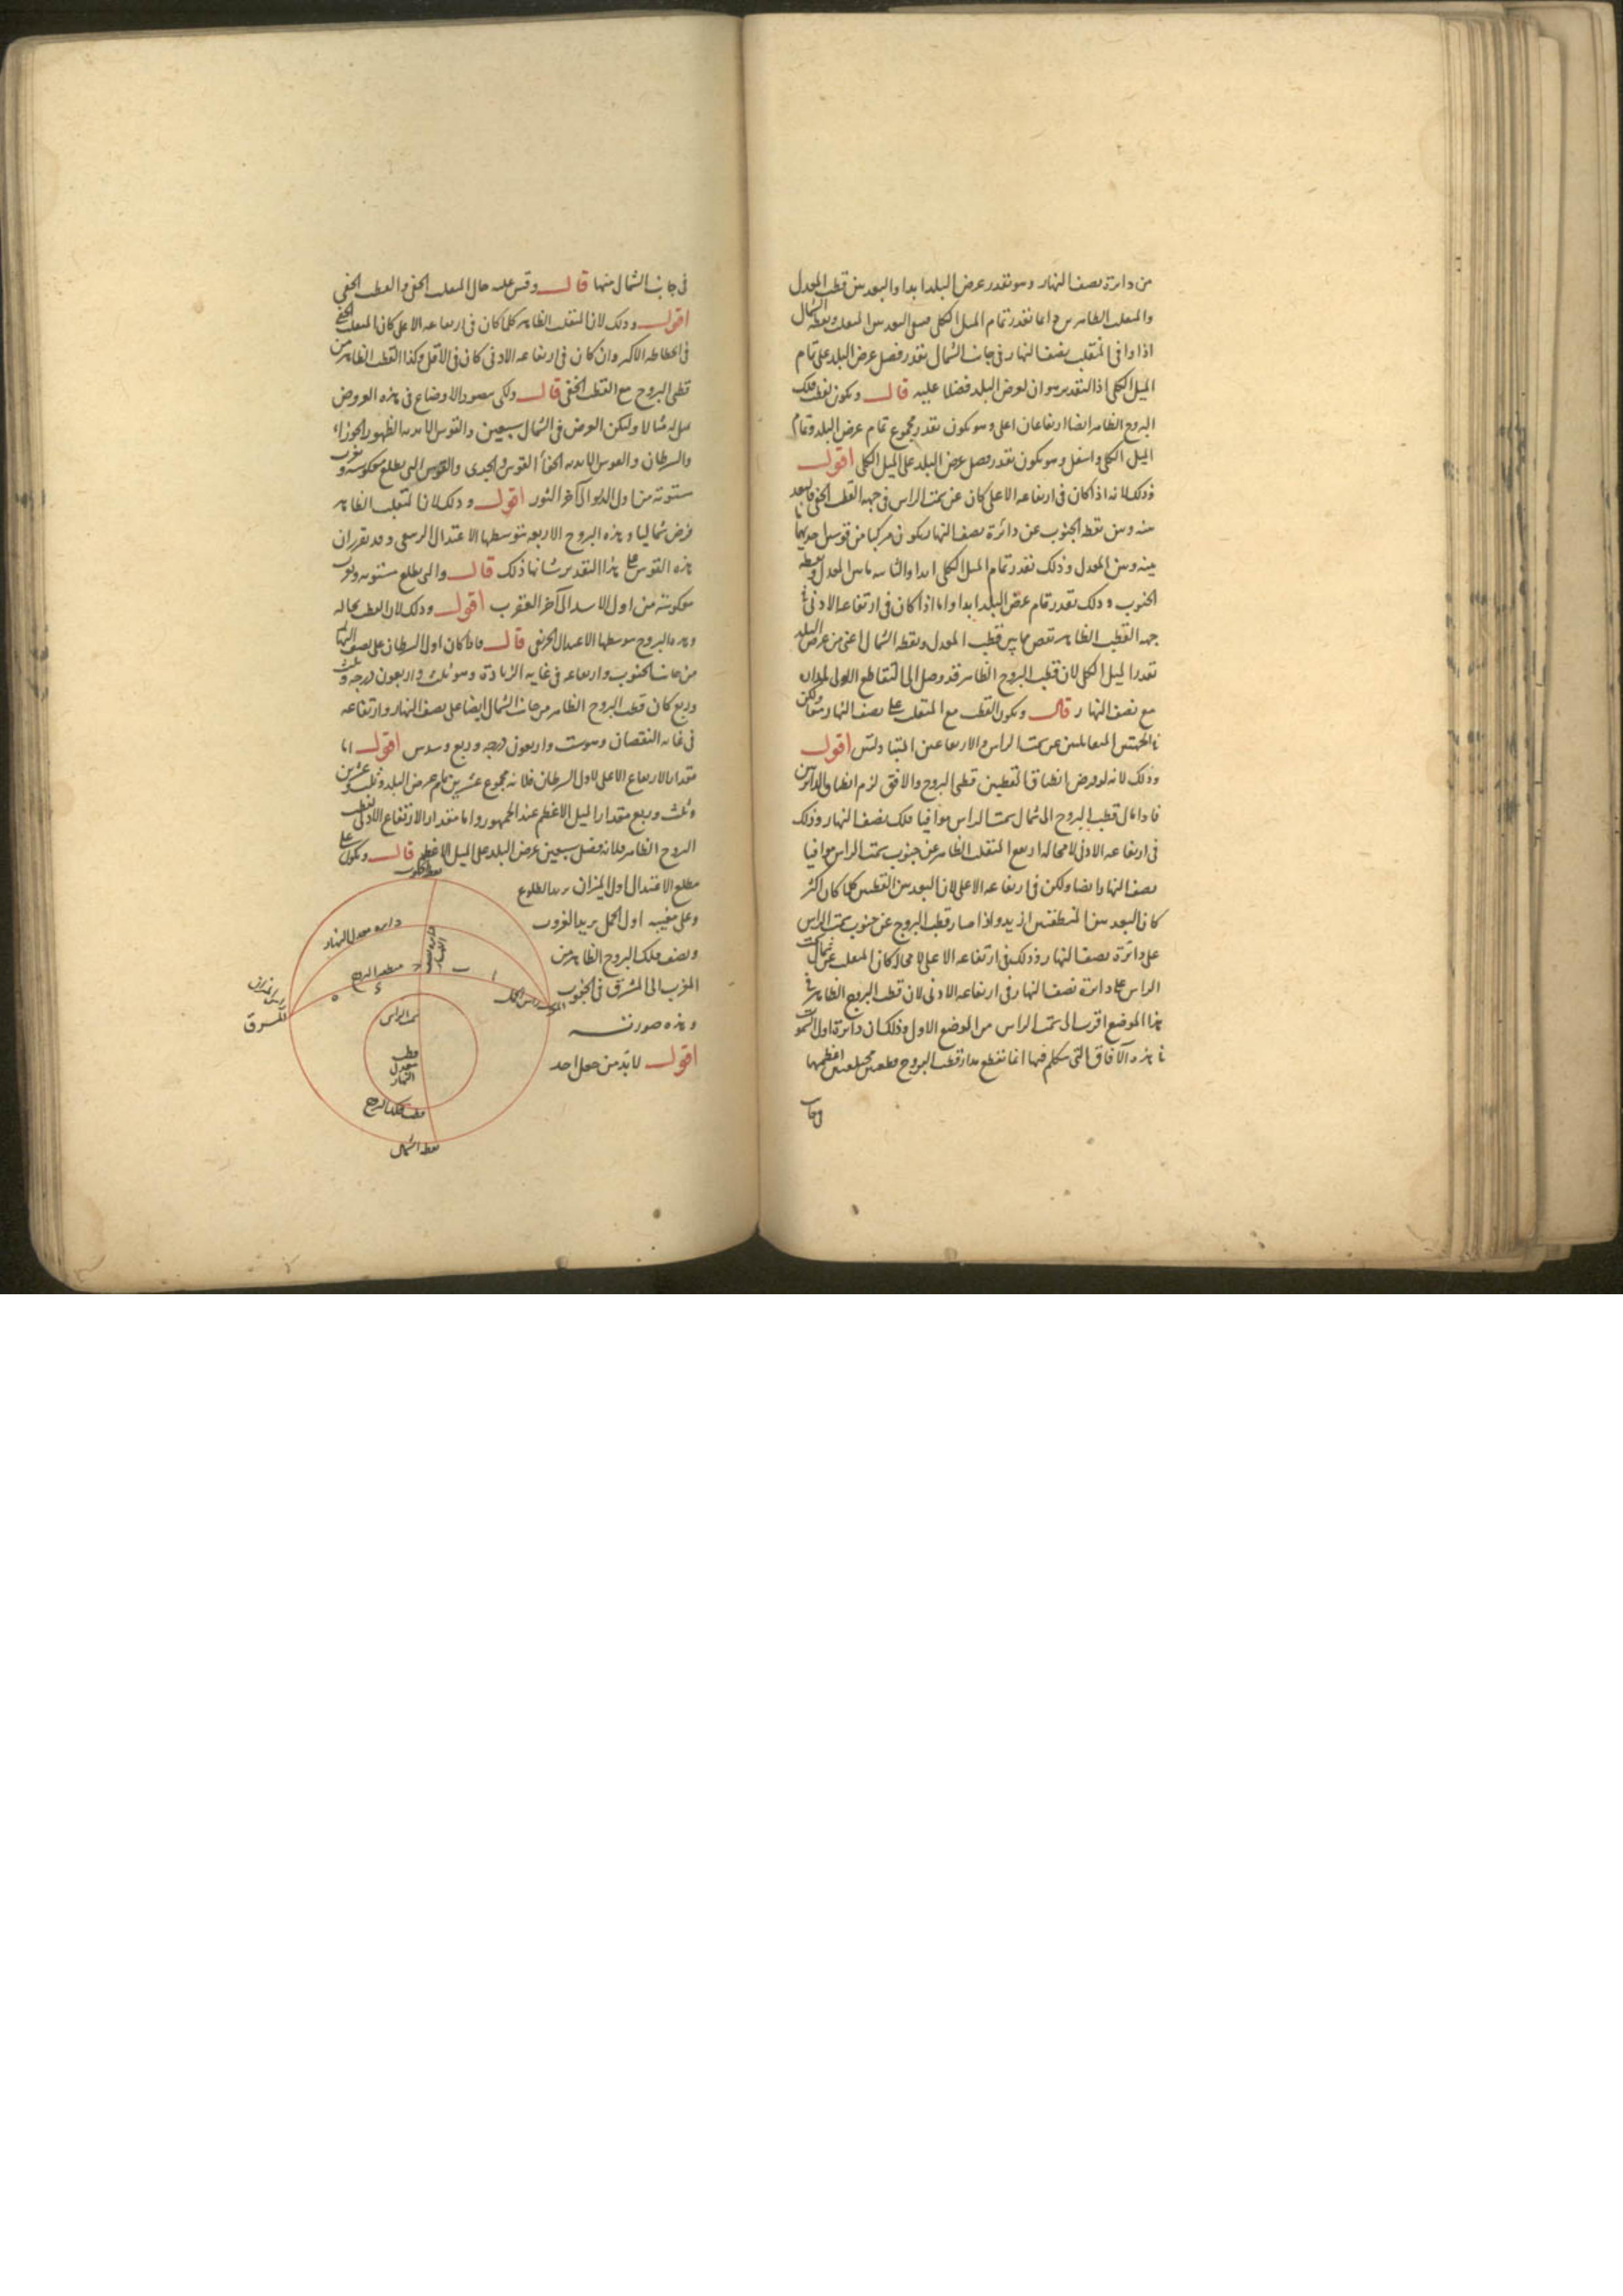 من دائرة نصف النهار وهو بقدر عرض البلد ابدا والبعد بين قطب المعدل
والمنقلب الظاهر دائما بقدر تمام الميل الكلى فيبقى البعد بين المنقلب ونقطة الشمال
اذا وافى المنقلب نصف النهار فى جانب الشمال بقدر فضل عرض البلد على تمام
الميل الكلى اذ التقدير هو ان لعرض البلد فضلا عليه قال ويكون لقطب فلك
البروج الظاهر ايضا ارتفاعان اعلى وهو يكون بقدر مجموع تمام عرض البلد وتمام
الميل الكلى واسفل وهو يكون بقدر فضل عرض البلد على الميل الكلى اقول
وذلك لانه اذا كان فى ارتفاعه الاعلى كان عن سمت الراس فى جهة القطب الخفى فالبعد
بينه وبين نقطة الجنوب عن دائرة نصف النهار يكون مركبا من قوسين احديهما ما
بينه وبين المعدل وذلك بقدر تمام الميل الكلى ابدا والثانية ما بين المعدل ونقطة
الجنوب وذلك بقدر تمام عرض البلد ابدا واما اذا كان فى ارتفاعه الادنى فى
جهة القطب الظاهر نقص مما بين قطب المعدل ونقطة الشمال اعنى من عرض البلد
بقدر الميل الكلى لان قطب البروج الظاهر قد وصل الى التقاطع الاول لمداره
مع نصف النهار قال ويكون القطب مع المنقلب على نصف النهار معا ولكن
فى الجهتين المتقابلتين عن سمت الراس والارتفاعين المتبادلين اقول
وذلك لانه لو فرض انطباق القطبين قطبى البروج والافق لزم انطباق الدائرتين
فاذا مال قطب البروج الى شمال سمت الراس موافيا فلك نصف النهار وذلك
فى ارتفاعه الادنى لا محالة ارتفع المنقلب الظاهر عن جنوب سمت الراس موافيا
نصف النهار ايضا ولكن فى ارتفاعه الاعلى لان البعد بين القطبين كلما كان اكثر
كان البعد بين المنطقتين ازيد واذا صار قطب البروج عن جنوب سمت الراس
على دائرة نصف النهار وذلك فى ارتفاعه الاعلى لا محالة كان المنقلب عن شمال سمت
الراس على دائرة نصف النهار فى ارتفاعه الادنى لان قطب البروج الظاهر فى
هذا الموضع اقرب الى سمت الراس من الموضع الاول وذلك ان دائرة اول السموت
فى هذه الآفاق التى نتكلم فيها انما تقطع مدار قطب البروج بقطعتين مختلفتين اعظمهما
فى جانب
فى جانب الشمال منها قال وقس عليه حال المنقلب الخفى والقطب الخفى
اقول وذلك لان المنقلب الظاهر كلما كان فى ارتفاعه الاعلى كان المنقلب الخفى
فى انحطاطه الاكبر وان كان فى ارتفاعه الادنى كان فى الاقل وكذا القطب الظاهر من
قطبى البروج مع القطب الخفى قال ولكى يتصور الاوضاع فى هذه العروض
مثالا وليكن العرض فى الشمال سبعين والقوس الابدية الظهور الجوزاء
والسرطان والقوس الابدية الخفاء القوس والجدى والقوس التى يطلع معكوسة ويغرب
مستوية من اول الدلو الى آخر الثور اقول وذلك لان المنقلب الظاهر
فرض شماليا وهذه البروج الاربعة يتوسطها الاعتدال الربيعى وقد تقرر ان
هذه القوس على هذا التقدير شانها ذلك قال والتى يطلع مستوية ويغرب
معكوسة من اول الاسد الى آخر العقرب اقول وذلك لان القطب بحاله
وهذه البروج يتوسطها الاعتدال الخريفى قال فاذا كان اول السرطان على نصف النهار
من جانب الجنوب وارتفاعه فى غاية الزيادة وهو ثلث واربعون درجة وثلث
وربع كان قطب البروج الظاهر من جانب الشمال ايضا على نصف النهار وارتفاعه
فى غاية النقصان وهو ست واربعون درجة وربع وسدس اقول اما
مقدار الارتفاع الاعلى لاول السرطان فلانه مجموع عشرين تمام عرض البلد وثلث وعشرين
وثلث وربع مقدار الميل الاعظم عند الجمهور واما مقدار الارتفاع الادنى لقطب
البروج الظاهر فلانه فضل سبعين عرض البلد على الميل الاعظم قال ويكون على
مطلع الاعتدال اول الميزان يريد الطلوع
وعلى مغيبه اول الحمل يريد الغروب
ونصف فلك البروج الظاهر من
المغرب الى المشرق فى الجنوب
وهذه صورته
اقول لابد من جعل احد
نقطة الجنوب
دائرة معدل النهار
دائرة نصف النهار
منطقة البروج
راس الميزان
المشرق
المغرب
راس الحمل
سمت الراس
قطب معدل النهار
قطب فلك البروج
نقطة الشمال